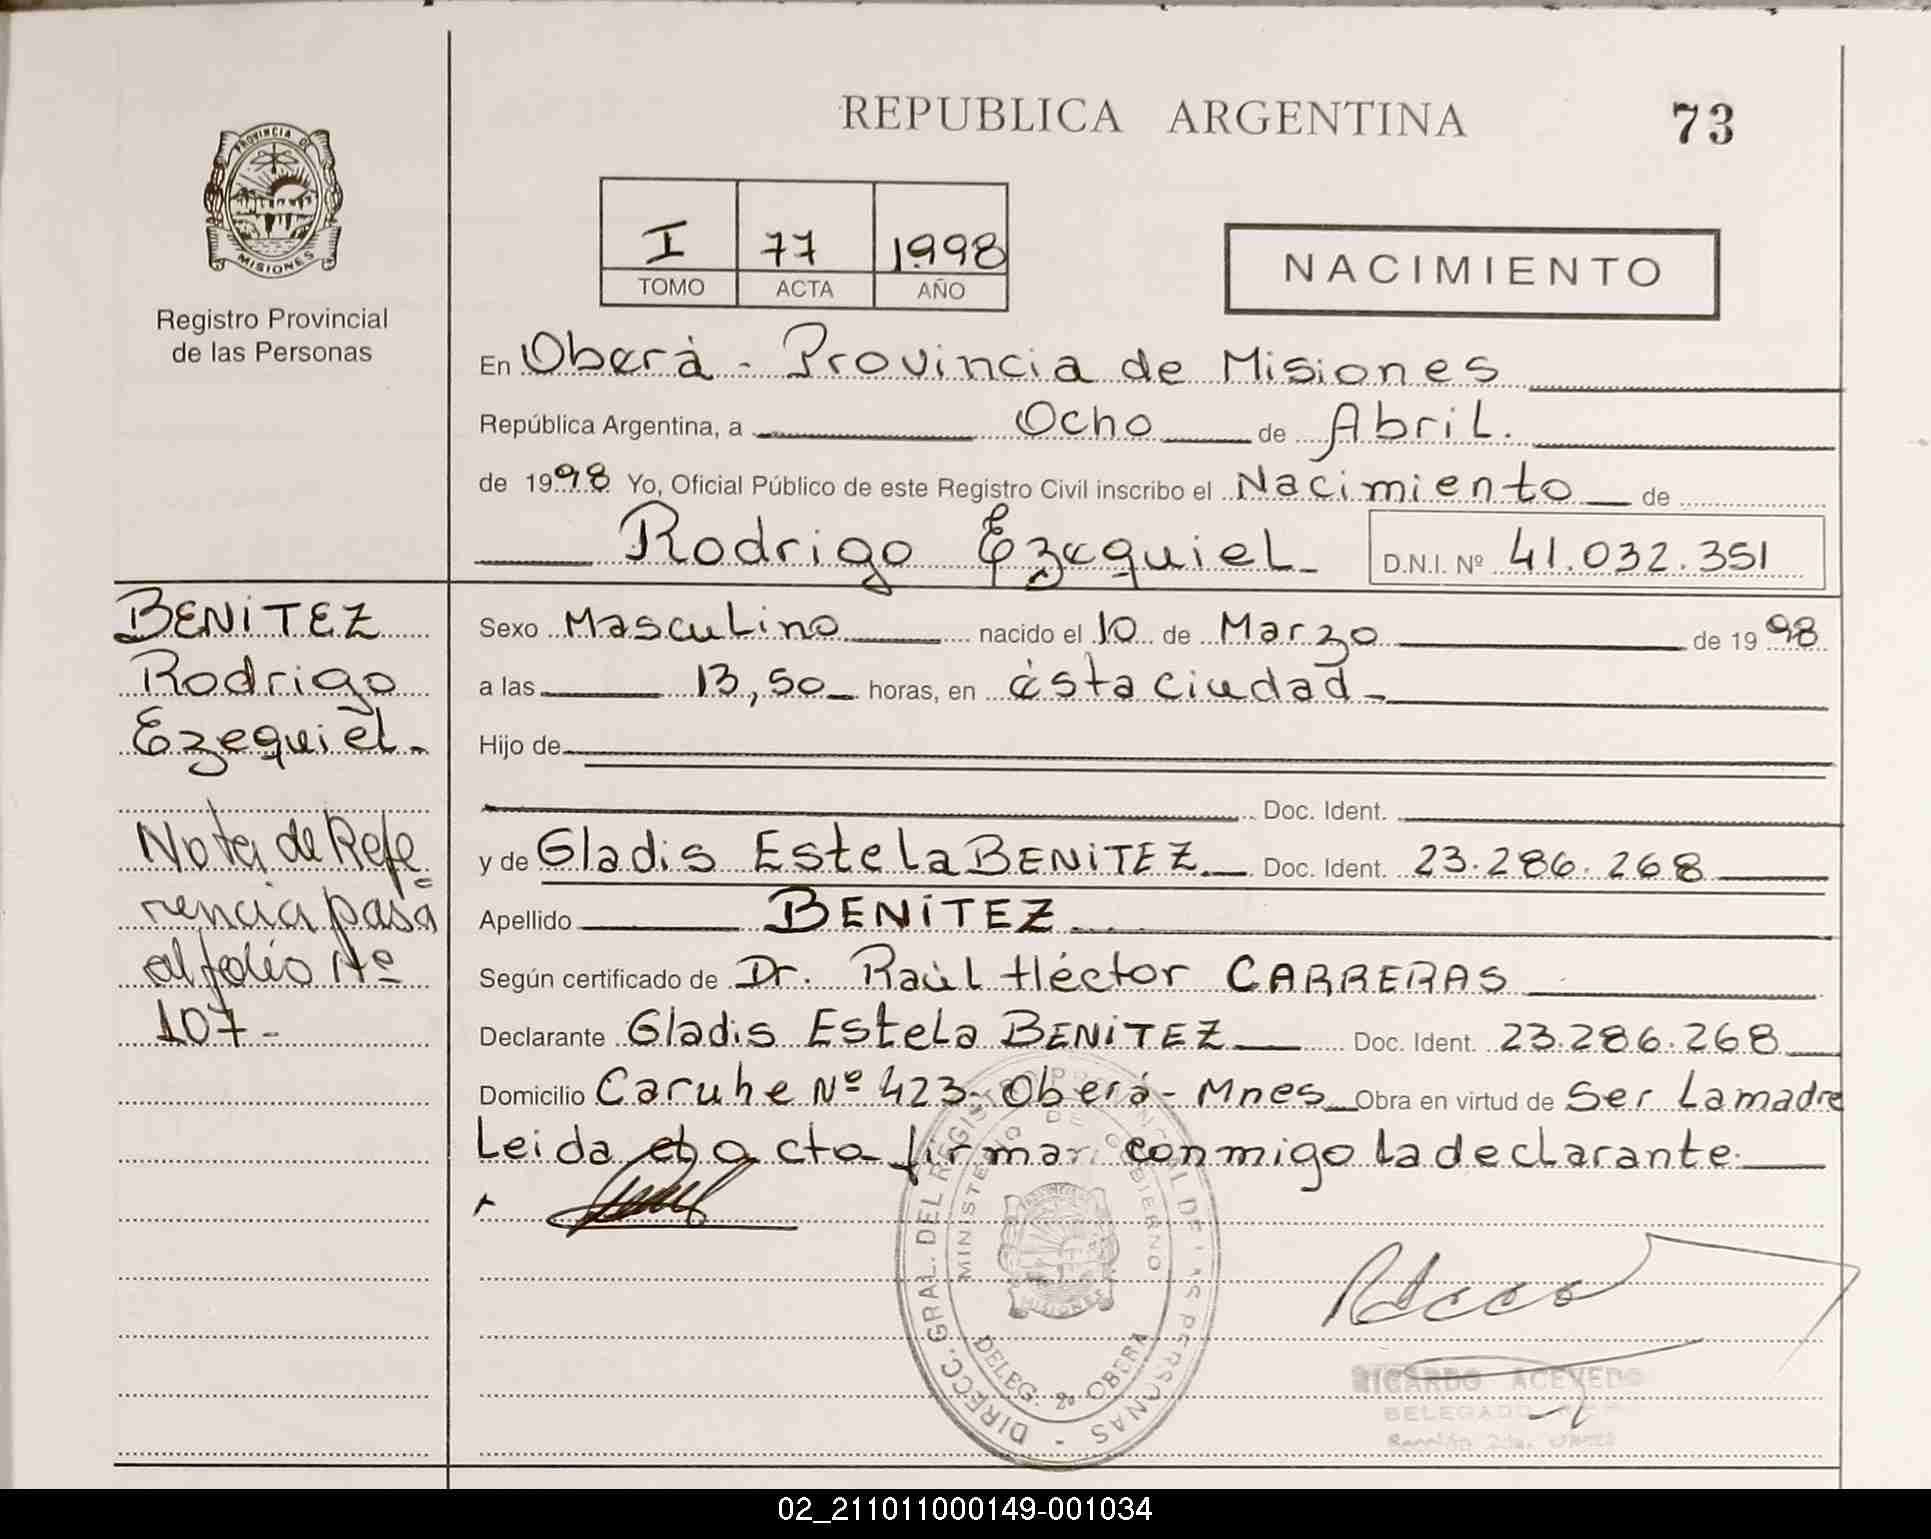 PROVINCIA DE
MISIONES
Registro Provincial
de las Personas
REPUBLICA ARGENTINA 73
I 77 1998
TOMO ACTA AÑO
NACIMIENTO
En Oberà - Provincia de Misiones
República Argentina, a Ocho de Abril.
de 1998 Yo, Oficial Público de este Registro Civil inscribo el Nacimiento de
Rodrigo Ezequiel D.N.I. Nº 41.032.351
BENITEZ
Rodrigo
Ezequiel.-
Nota de Refe
rencia pasa
al folio Nº
107-
Sexo Masculino nacido el 10 de Marzo de 1998
a las 13,50 horas, en ésta ciudad
Hijo de
Doc. Ident.
y de Gladis Estela BENITEZ Doc. Ident. 23.286.268
Apellido BENITEZ
Según certificado de Dr. Raùl Héctor CARRERAS
Declarante Gladis Estela BENITEZ Doc. Ident. 23.286.268
Domicilio Caruhe Nº 423- Oberá- Mnes Obra en virtud de Ser La madre
Leida el acta firmar conmigo la declarante.
DIRECC. GRAL. DEL REGISTRO PROVINCIAL DE LAS PERSONAS -
MINISTERIO DE GOBIERNO
MISIONES
DELEG. 2º OBERA
RICARDO ACEVEDO
DELEGADO
Sección 2da.
02_211011000149-001034